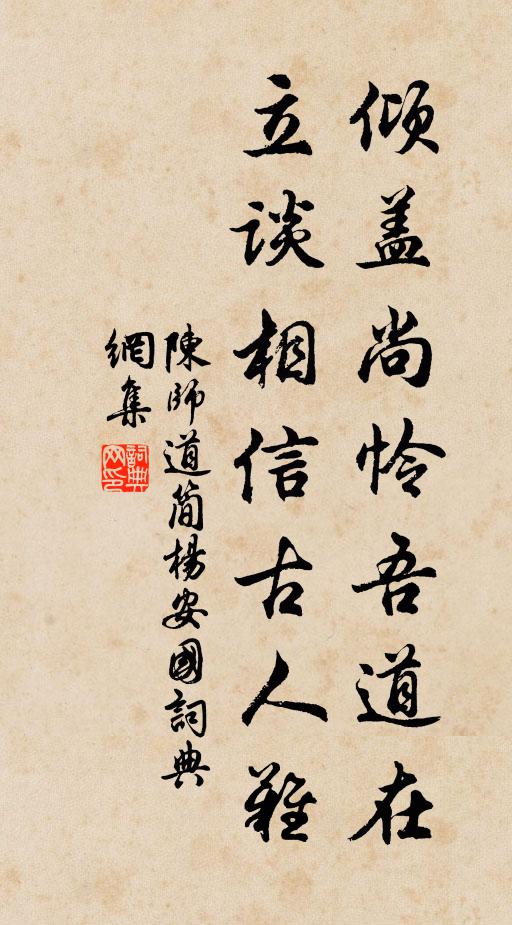 倾盖尚怜吾道在
立谈相信古人难
陳師道簡楊安國詞典
網集
詞典網印